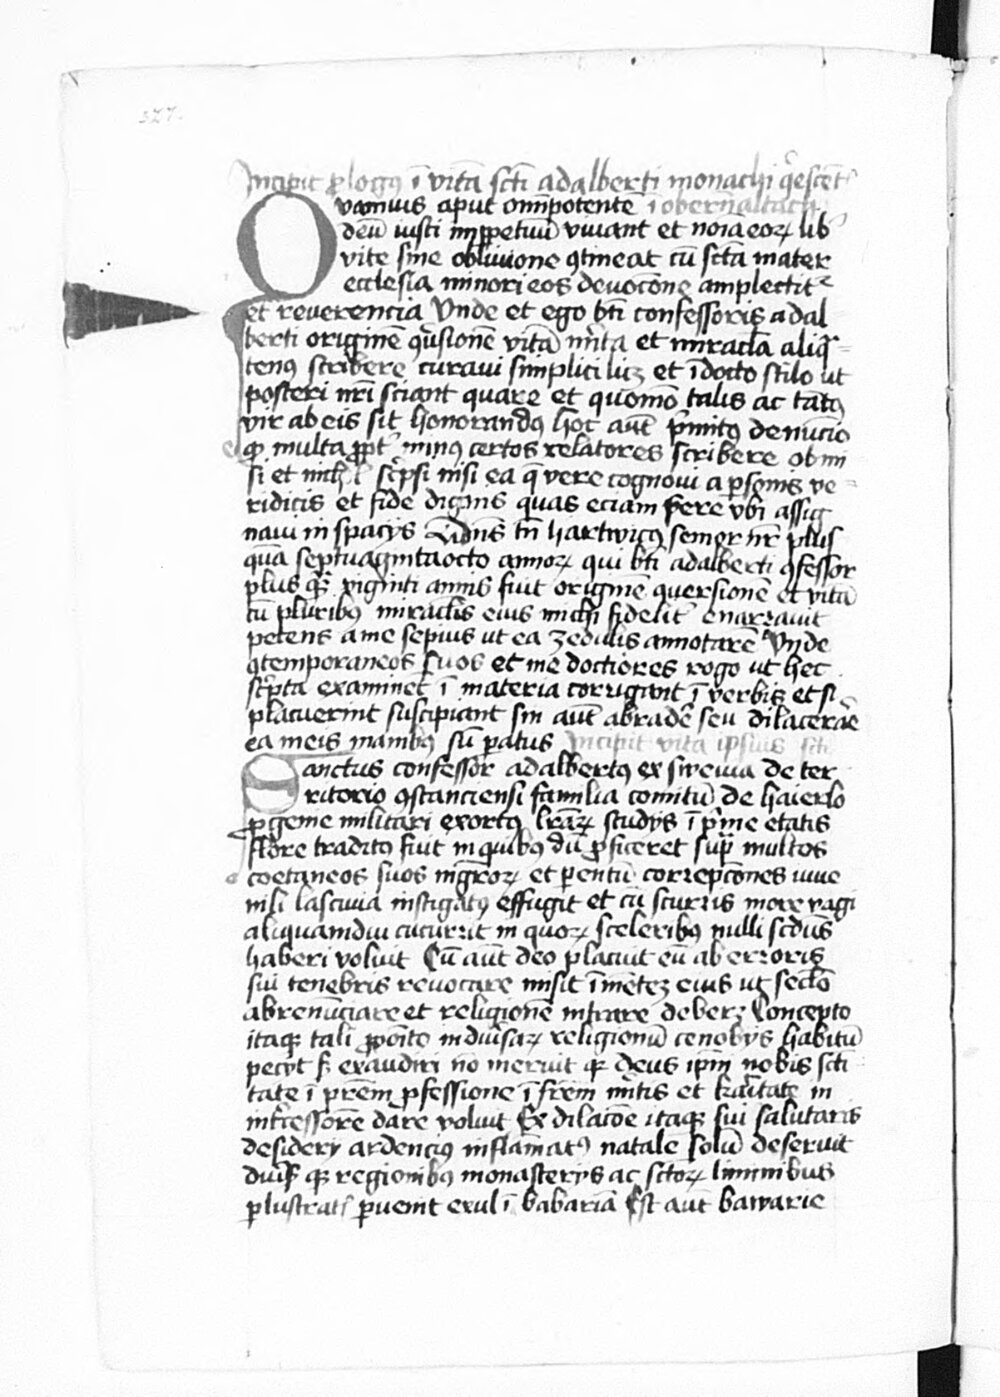 327.
Incipit ꝓlogꝯ ī vitā scti adalberti monachi q̄escēt
Quamuis aput om̄ipotentē ī obern̄altach
deū iusti imꝑpetuū viuant et noīa eoꝝ lib
vite sine obliuione ꝯtineat cū sctā mater
ecclesia minori eos deuocōne amplectitᷣ
et reuerencia Vnde et ego bt̄i confessoris adal
berti originē ꝯūsionē vitā m̄ita et miracl̄a aliqͣ
tenꝯ scribere curaui simplici licꝫ et īdocto stilo ut
posteri nr̄i sciant quare et quomō talis ac tātꝯ
vir ab eis sit honorandꝯ hoc aūt p̄mitꝯ denūcio
qꝫ multa ꝓpt̄ minꝯ certos relatores scribere obmi
si et nichil sc̄psi nisi ea q̄ vere cognoui a ꝑsonis ve
ridicis et fide dignis quas eciam fere vbi assig
naui in spacijs Dn̄s tn̄ hartwicꝯ senior nr̄ plus
quā septuagintaocto annoꝝ qui bt̄i adalberti ꝯfessor
plus qͣꝫ viginti annis fuit originē ꝯuersionē et vitā
cū pluribꝯ miraclis eius michi fidelit᷒ enarrauit
petens a me sepius ut ea zedulis annotarē Vnde
ꝯtemporaneos suos et me doctiores rogo ut hec
sc̄pta examinēt ī materia corrigant ī verbis et si
placuerint suscipiant sin aūt abradē seu dilacerāe
ea meis manibꝯ sū ꝑatus Incipit vita ipsius scti
Sanctus confessor adalbertꝯ ex sweuia de ter
ritorio ꝯstanciensi familia comitū de haierlo
ꝓgenie militari exortꝯ lrāꝝ studijs ī p̄me etatis
flore traditꝯ fuit in quibꝯ dū ꝓficeret sup̄ multos
coetaneos suos mgr̄oꝝ et ꝑentū correpcōnes iuue
nili lasciuia instigatꝯ effugit et cū scurris more vagi
aliquamdiu cucurrit in quoꝝ sceleribꝯ nulli scd̄us
haberi voluit Cū aūt deo placuit eū ab erroris
sui tenebris reuocare misit ī mētez eius ut seclo
abrenūciare et religionē intrare deberꝫ Concepto
itaqꝫ tali ꝓpoīto in diūsaꝝ religionū cenobijs habitū
pecijt sꝫ exaudiri nō meruit qꝫ deus ip̄m nobis scti
tate ī pr̄em ꝓfessione ī frēm m̄itis et kāritate in
int̄cessorē dare voluit Ex dilacōe itaqꝫ sui salutaris
desiderij ardenciꝯ inflāmatꝯ natale solū deseruit
diūsꝫ qꝫ regionibꝯ monasterijs ac sctoꝝ liminibus
ꝑlustratꝭ ꝑuenit exul ī babariā Est aūt bawarie